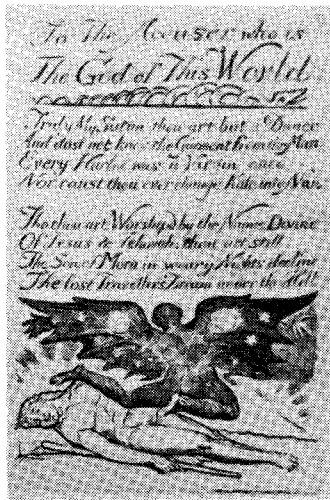 To The Accuser who is
The God of This World
Truly My Satan thou art but a Dunce
And dost not know the Garment from the Man
Every Harlot was a Virgin once
Nor canst thou ever change Kate into Nan
Tho thou art Worship'd by the Names Divine
Of Jesus & Jehovah: thou art still
The Son of Morn in weary Nights decline
The lost Travellers Dream under the Hill